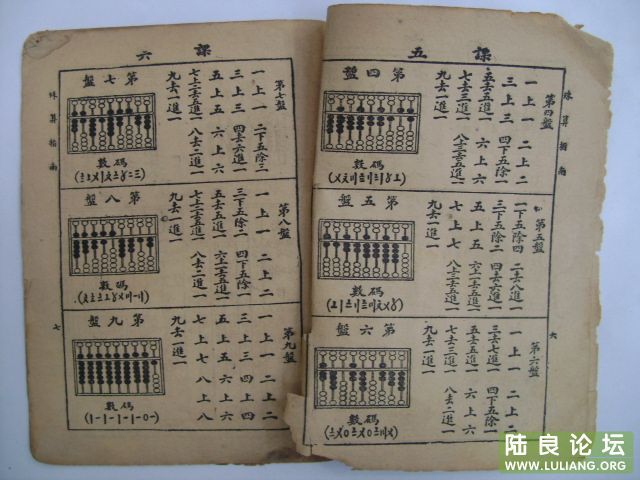 課五
珠算指南
第四盤
第四盤
一上一 二上二
三上三 四下五除一
五去五進一 六上六
七去三進一 八去二進一
九去一進一
數碼
第五盤
第五盤
一下五除四 二去八進一
三下五除二 四去六進一
五上五
七上七
九去一進一
數碼
第六盤
第六盤
一上一 二上二
三去七進一 四下五除一
五去五進一 六上六
七去三進一 八去二進一
九去一進一
數碼
六
課六
珠算指南
第七盤
第七盤
一上一 二下五除三
三上三 四去六進一
五上五 六上六
七上二去五進一 八去二進一
九去一進一
數碼
第八盤
第八盤
一上一 二上二
三下五除二 四下五除一
五去五進一 六上一去五進一
七上二去五進一 八去二進一
九去一進一
數碼
第九盤
第九盤
一上一 二上二
三上三 四上四
五上五 六上六
七上七 八上八
九去一進一
數碼
(1-1-1-1-0-)
七
陆良论坛
WWW.LULIANG.ORG